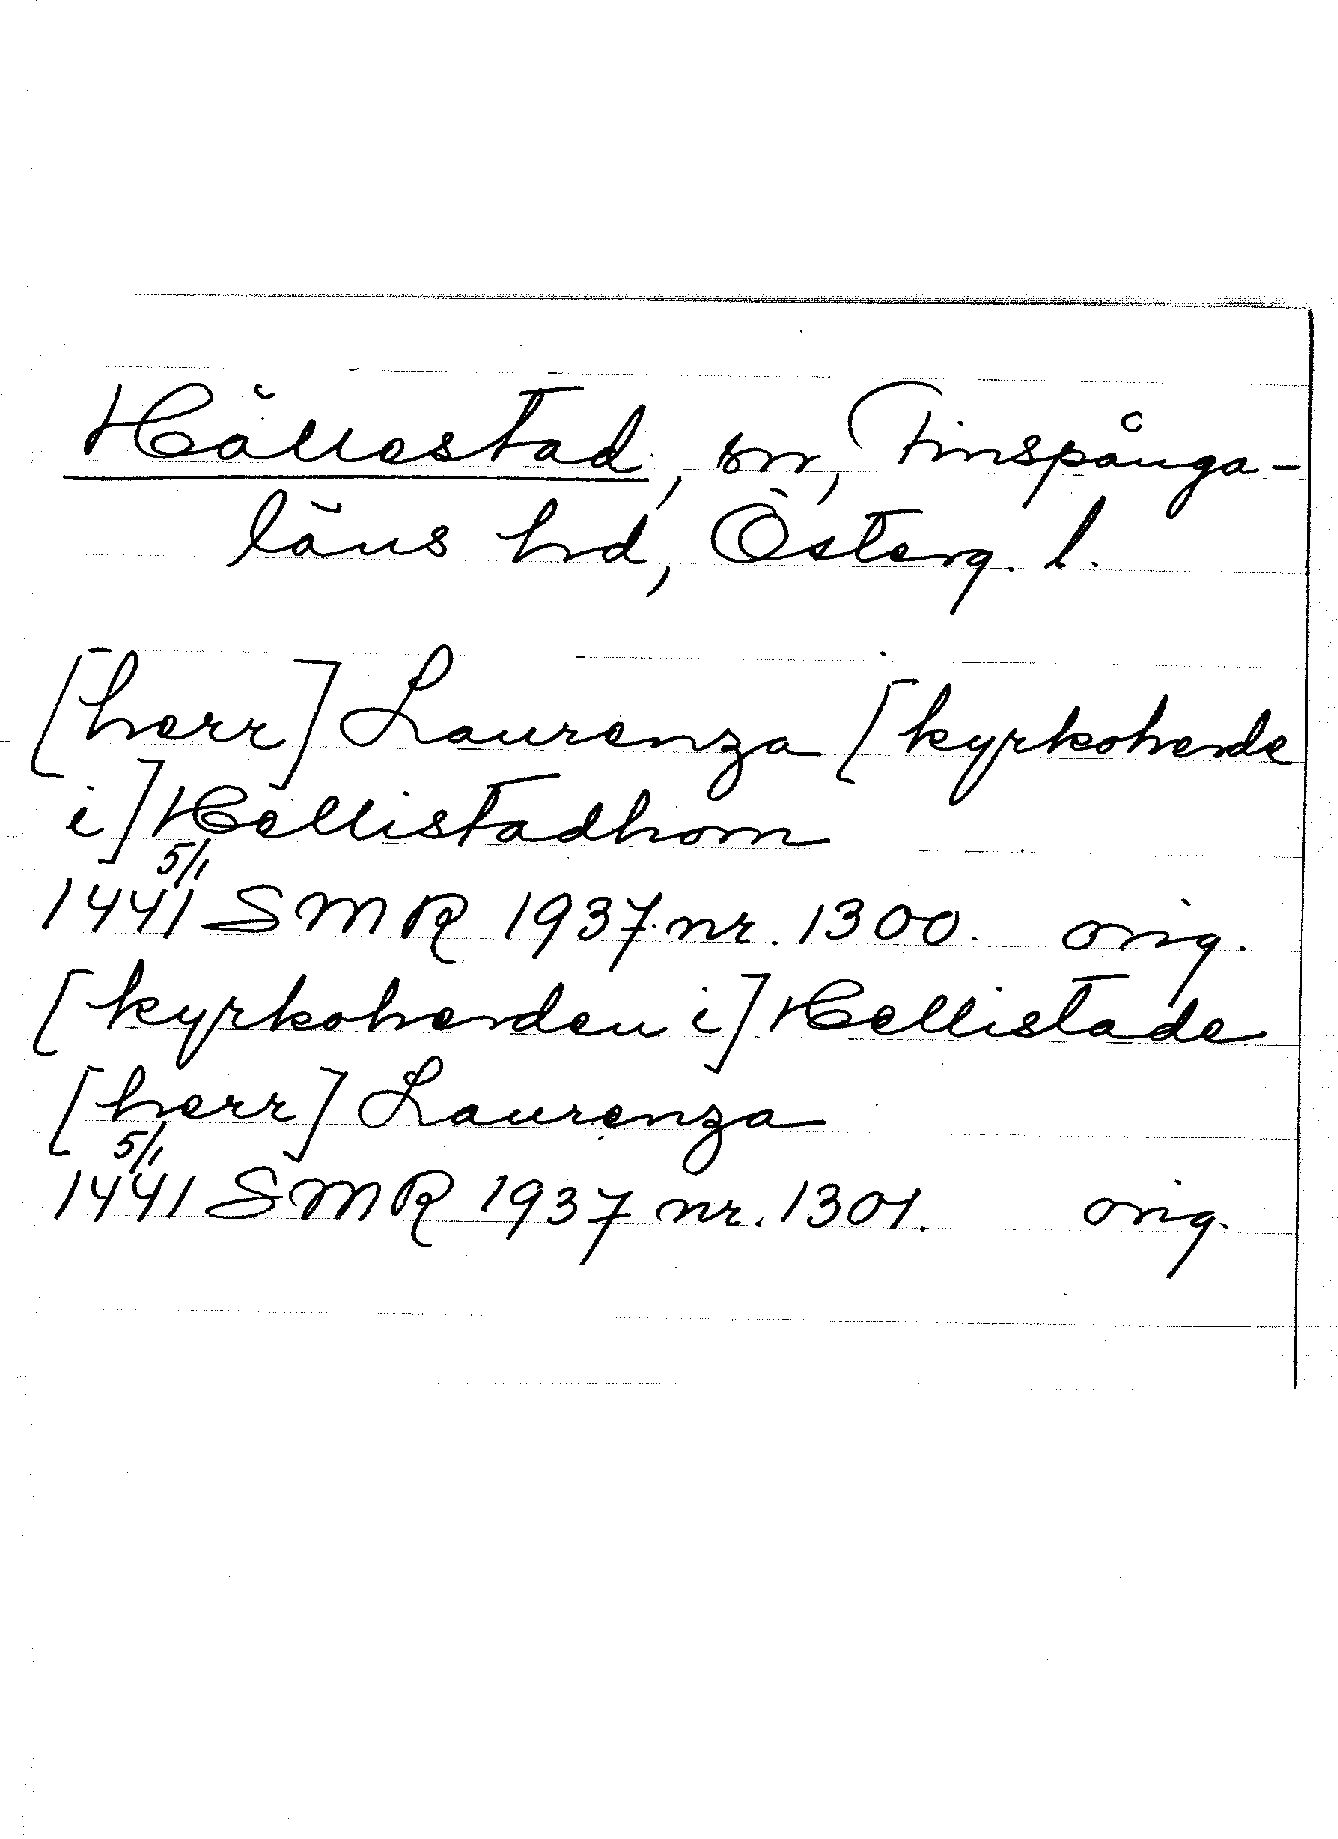 Hällestad, sn, Finspånga-
läns hd, Österg. l.
[herr] Laurenza [kyrkoherde
i] Hellistadhom
5/1
1441 SMR 1937 nr. 1300. orig.
[kyrkoherden i] Hellistade
[herr] Laurenza
5/1
1441 SMR 1937 nr. 1301. orig.